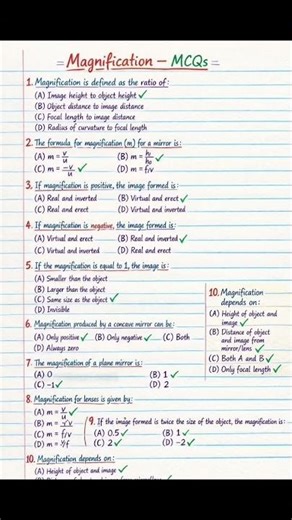 = Magnification – MCQs =
1. Magnification is defined as the ratio of:
(A) Image height to object height ✓
(B) Object distance to image distance
(C) Focal length to image distance
(D) Radius of curvature to focal length
2. The formula for magnification (m) for a mirror is:
(A) m = v/u (B) m = hi/ho ✓
(C) m = -v/u ✓ (D) m = f/v
3. If magnification is positive, the image formed is:
(A) Real and inverted (B) Virtual and erect ✓
(C) Real and erect (D) Virtual and inverted
4. If magnification is negative, the image formed is:
(A) Virtual and erect (B) Real and inverted ✓
(C) Virtual and inverted (D) Real and erect
5. If the magnification is equal to 1, the image is:
(A) Smaller than the object
(B) Larger than the object
(C) Same size as the object ✓
(D) Invisible
6. Magnification produced by a concave mirror can be:
(A) Only positive ✓ (B) Only negative ✓ (C) Both
(D) Always zero
7. The magnification of a plane mirror is:
(A) 0 (B) 1 ✓
(C) -1 ✓ (D) 2
8. Magnification for lenses is given by:
(A) m = v/u ✓
(B) m =
(C) m = f/v
(D) m =
9. If the image formed is twice the size of the object, the magnification is:
(A) 0.5 ✓ (B) 1 ✓
(C) 2 ✓ (D) -2 ✓
10. Magnification
depends on:
(A) Height of object and
image ✓
(B) Distance of object
and image from
mirror/lens ✓
(C) Both A and B ✓
(D) Only focal length ✓
10. Magnification depends on:
(A) Height of object and image ✓